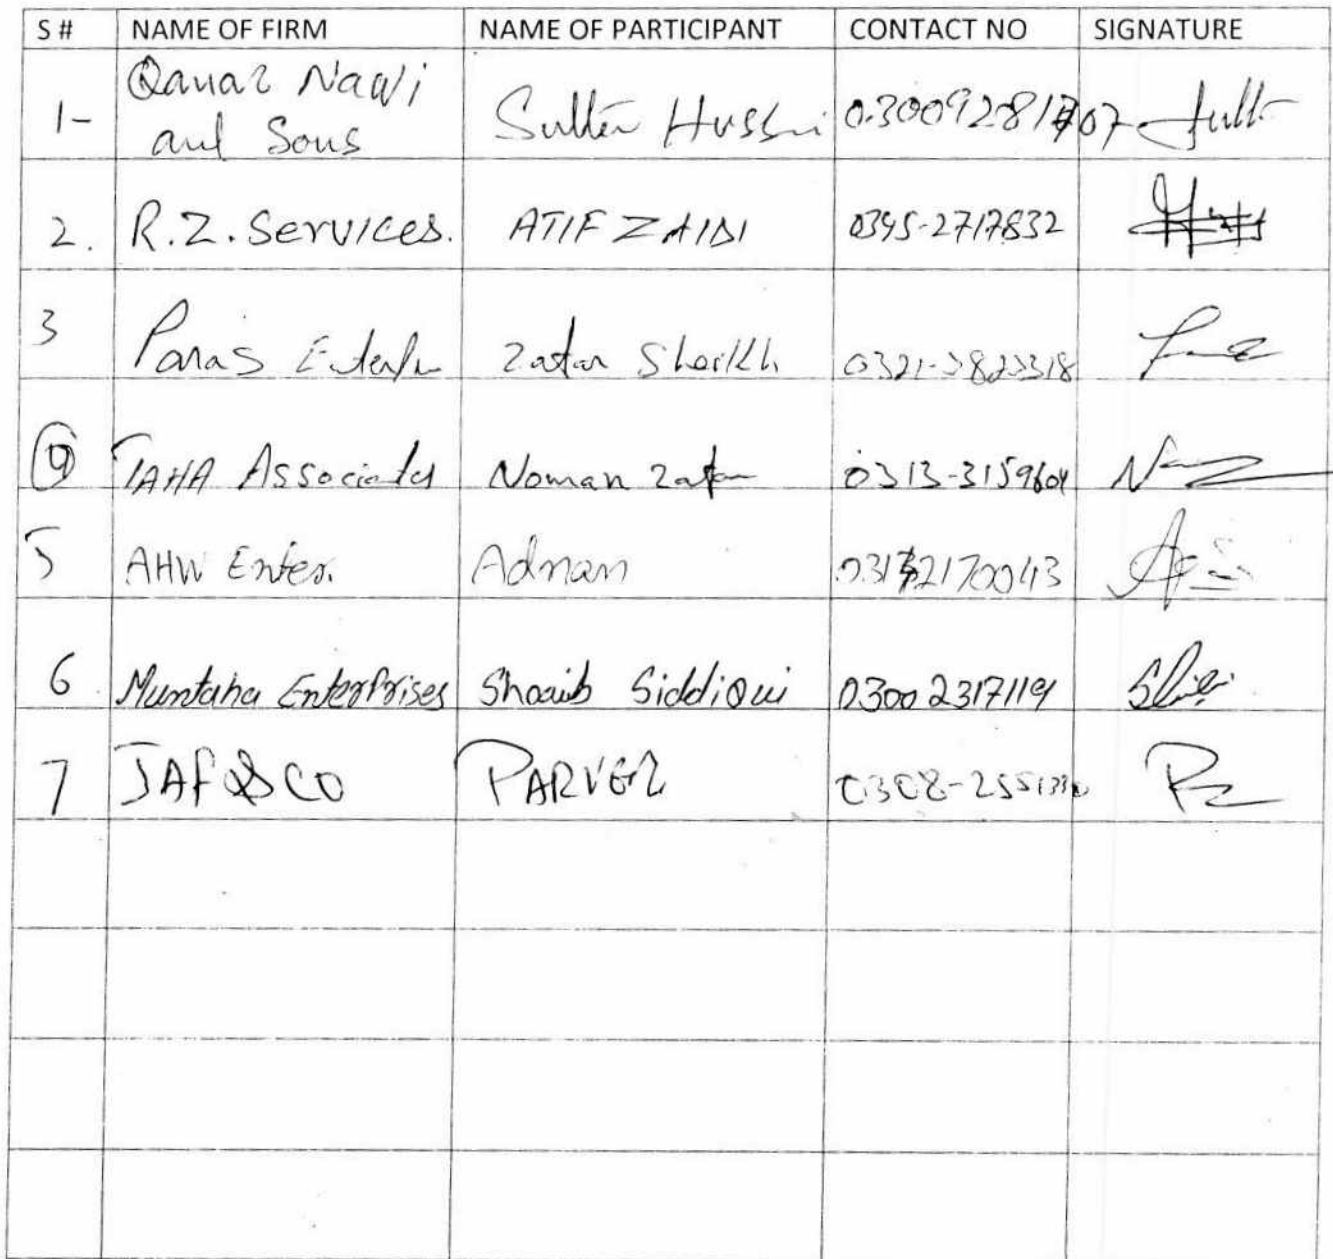 S # NAME OF FIRM NAME OF PARTICIPANT CONTACT NO SIGNATURE
1- Qamar Nawi
and Sons Sultan Hussain
2. R.Z. Services. ATIF ZAIDI 0345-2717832
3 Paras Zafar Sheikh
4 TAHA Associates Noman Zafar 0313-3159604
5 AHW Enter. Adnan
6 Muntaha Enterprises Shoaib Siddiqui 03002317119
7 JAF & CO PARVEZ